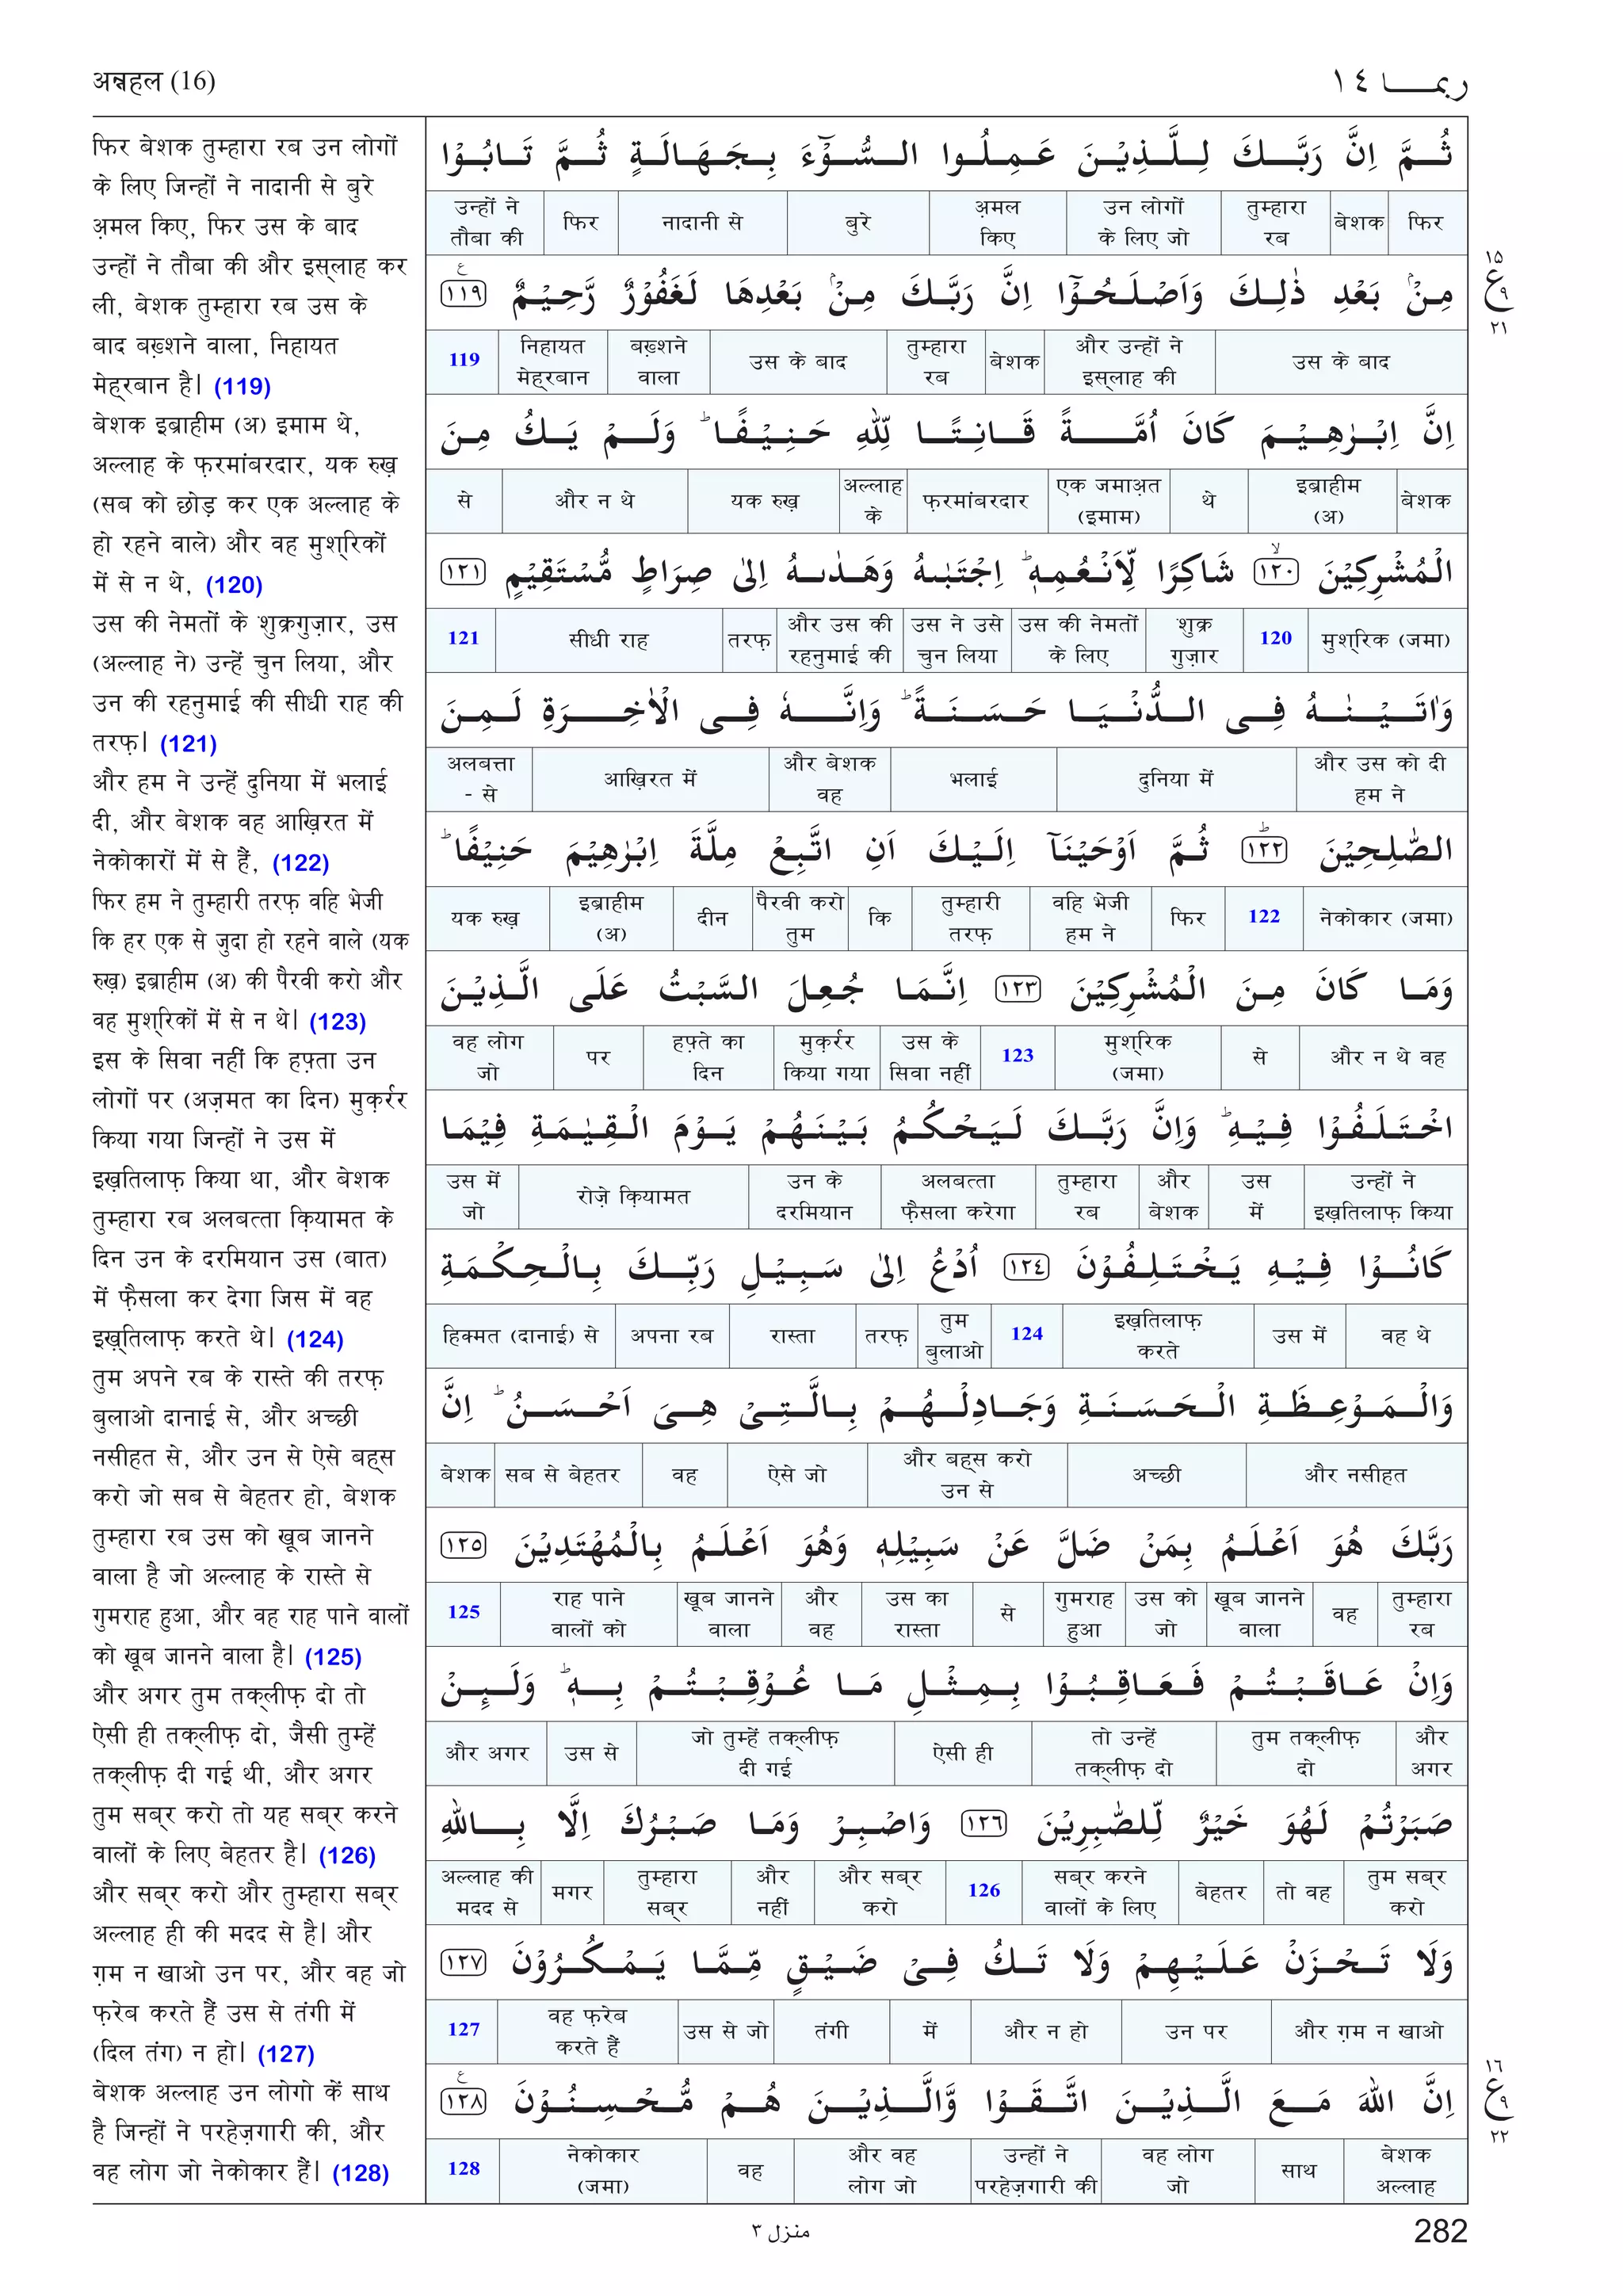 अन्नहल (16)
ربما ١٤
फिर बेशक तुम्हारा रब उन लोगों
के लिए जिन्हों ने नादानी से बुरे
अ़मल किए, फिर उस के बाद
उन्हों ने तौबा की और इस्लाह कर
ली, बेशक तुम्हारा रब उस के
बाद बख़्शने वाला, निहायत
मेह्रबान है। (119)
बेशक इब्राहीम (अ) इमाम थे,
अल्लाह के फ़रमांबरदार, यक रुख़
(सब को छोड़ कर एक अल्लाह के
हो रहने वाले) और वह मुश्रिकों
में से न थे, (120)
उस की नेमतों के शुक्रगुज़ार, उस
(अल्लाह ने) उन्हें चुन लिया, और
उन की रहनुमाई की सीधी राह की
तरफ़। (121)
और हम ने उन्हें दुनिया में भलाई
दी, और बेशक वह आख़िरत में
नेकोकारों में से हैं, (122)
फिर हम ने तुम्हारी तरफ़ वहि भेजी
कि हर एक से जुदा हो रहने वाले (यक
रुख़) इब्राहीम (अ) की पैरवी करो और
वह मुश्रिकों में से न थे। (123)
इस के सिवा नहीं कि हफ़्ते उन
लोगों पर (अज़मत का दिन) मुक़र्रर
किया गया जिन्हों ने उस में
इख़तिलाफ़ किया था, और बेशक
तुम्हारा रब अलबत्ता क़ियामत के
दिन उन के दरमियान उस (बात)
में फ़ैसला कर देगा जिस में वह
इख़्तिलाफ़ करते थे। (124)
तुम अपने रब के रास्ते की तरफ़
बुलाओ दानाई से, और अच्छी
नसीहत से, और उन से ऐसे बह्स
करो जो सब से बेहतर हो, बेशक
तुम्हारा रब उस को खूब जानने
वाला है जो अल्लाह के रास्ते से
गुमराह हुआ, और वह राह पाने वालों
को खूब जानने वाला है। (125)
और अगर तुम तक्लीफ़ दो तो
ऐसी ही तक्लीफ़ दो, जैसी तुम्हें
तक्लीफ़ दी गई थी, और अगर
तुम सब्र करो तो यह सब्र करने
वालों के लिए बेहतर है। (126)
और सब्र करो और तुम्हारा सब्र
अल्लाह ही की मदद से है। और
ग़म न खाओ उन पर, और वह जो
फ़रेब करते हैं उस से तंगी में
(दिल तंग) न हो। (127)
बेशक अल्लाह उन लोगो कें साथ
है जिन्हों ने परहेज़गारी की, और
वह लोग जो नेकोकार हैं। (128)
ثُمَّ اِنَّ رَبَّكَ لِلَّذِيْنَ عَمِلُوا السُّوْٓءَ بِجَهَالَةٍ ثُمَّ تَابُوْا
फिर बेशक तुम्हारा रब उन लोगों के लिए जो अ़मल किए बुरे नादानी से फिर उन्हों ने तौबा की
مِنْۢ بَعْدِ ذٰلِكَ وَاَصْلَحُوْٓا اِنَّ رَبَّكَ مِنْۢ بَعْدِهَا لَغَفُوْرٌ رَّحِيْمٌ ١١٩ ع
उस के बाद और उन्हों ने इस्लाह की बेशक तुम्हारा रब उस के बाद बख़्शने वाला निहायत मेह्रबान 119
١٥ ع ٩ ٢١
اِنَّ اِبْرٰهِيْمَ كَانَ اُمَّةً قَانِتًا لِّلّٰهِ حَنِيْفًا ؕ وَلَمْ يَكُ مِنَ
बेशक इब्राहीम (अ) थे एक जमाअ़त (इमाम) फ़रमांबरदार अल्लाह के यक रुख़ और न थे से
الْمُشْرِكِيْنَ ١٢٠ ۙ شَاكِرًا لِّاَنْعُمِهٖ ؕ اِجْتَبٰىهُ وَهَدٰىهُ اِلٰى صِرَاطٍ مُّسْتَقِيْمٍ ١٢١
मुश्रिक (जमा) 120 शुक्र गुज़ार उस की नेमतों के लिए उस ने उसे चुन लिया और उस की रहनुमाई की तरफ़ सीधी राह 121
وَاٰتَيْنٰهُ فِى الدُّنْيَا حَسَنَةً ؕ وَاِنَّهٗ فِى الْاٰخِرَةِ لَمِنَ
और उस को दी हम ने दुनिया में भलाई और बेशक वह आख़िरत में अलबत्ता - से
الصّٰلِحِيْنَ ١٢٢ ؕ ثُمَّ اَوْحَيْنَآ اِلَيْكَ اَنِ اتَّبِعْ مِلَّةَ اِبْرٰهِيْمَ حَنِيْفًا ؕ
नेकोकार (जमा) 122 फिर वहि भेजी हम ने तुम्हारी तरफ़ कि पैरवी करो तुम दीन इब्राहीम (अ) यक रुख़
وَمَا كَانَ مِنَ الْمُشْرِكِيْنَ ١٢٣ اِنَّمَا جُعِلَ السَّبْتُ عَلَى الَّذِيْنَ
और न थे वह से मुश्रिक (जमा) 123 उस के सिवा नहीं मुक़र्रर किया गया हफ़्ते का दिन पर वह लोग जो
اخْتَلَفُوْا فِيْهِ ؕ وَاِنَّ رَبَّكَ لَيَحْكُمُ بَيْنَهُمْ يَوْمَ الْقِيٰمَةِ فِيْمَا
उन्हों ने इख़तिलाफ़ किया उस में और बेशक तुम्हारा रब अलबत्ता फ़ैसला करेगा उन के दरमियान रोज़े क़ियामत उस में जो
كَانُوْا فِيْهِ يَخْتَلِفُوْنَ ١٢٤ اُدْعُ اِلٰى سَبِيْلِ رَبِّكَ بِالْحِكْمَةِ
वह थे उस में इख़तिलाफ़ करते 124 तुम बुलाओ तरफ़ रास्ता अपना रब हिक्मत (दानाई) से
وَالْمَوْعِظَةِ الْحَسَنَةِ وَجَادِلْهُمْ بِالَّتِىْ هِىَ اَحْسَنُ ؕ اِنَّ
और नसीहत अच्छी और बह्स करो उन से ऐसे जो वह सब से बेहतर बेशक
رَبَّكَ هُوَ اَعْلَمُ بِمَنْ ضَلَّ عَنْ سَبِيْلِهٖ وَهُوَ اَعْلَمُ بِالْمُهْتَدِيْنَ ١٢٥
तुम्हारा रब वह खूब जानने वाला उस को जो गुमराह हुआ से उस का रास्ता और वह खूब जानने वाला राह पाने वालों को 125
وَاِنْ عَاقَبْتُمْ فَعَاقِبُوْا بِمِثْلِ مَا عُوْقِبْتُمْ بِهٖ ؕ وَلَئِنْ
और अगर तुम तक्लीफ़ दो तो उन्हें तक्लीफ़ दो ऐसी ही जो तुम्हें तक्लीफ़ दी गई उस से और अगर
صَبَرْتُمْ لَهُوَ خَيْرٌ لِّلصّٰبِرِيْنَ ١٢٦ وَاصْبِرْ وَمَا صَبْرُكَ اِلَّا بِاللّٰهِ
तुम सब्र करो तो वह बेहतर सब्र करने वालों के लिए 126 और सब्र करो और नहीं तुम्हारा सब्र मगर अल्लाह की मदद से
وَلَا تَحْزَنْ عَلَيْهِمْ وَلَا تَكُ فِىْ ضَيْقٍ مِّمَّا يَمْكُرُوْنَ ١٢٧
और ग़म न खाओ उन पर और न हो में तंगी उस से जो वह फ़रेब करते हैं 127
اِنَّ اللّٰهَ مَعَ الَّذِيْنَ اتَّقَوْا وَّالَّذِيْنَ هُمْ مُّحْسِنُوْنَ ١٢٨ ع
बेशक अल्लाह साथ वह लोग जो उन्हों ने परहेज़गारी की और वह लोग जो वह नेकोकार (जमा) 128
١٦ ع ٩ ٢٢
منزل ٣
282